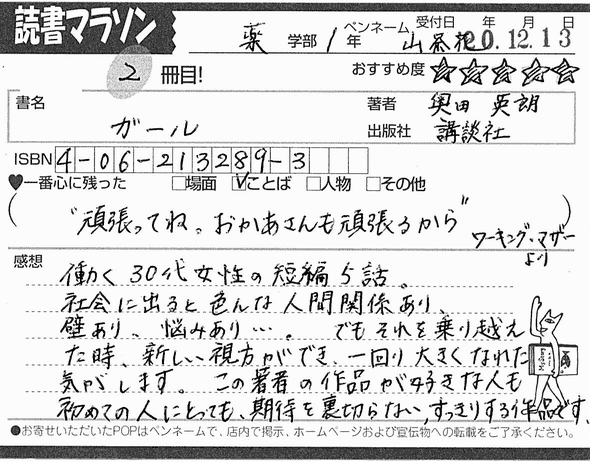 読書マラソン
薬 学部 1 年 ペンネーム 山茶花 受付日 年 月 日
20.12.13
2 冊目! おすすめ度 ☆☆☆☆☆
書名 ガール 著者 奥田 英朗
出版社 講談社
ISBN 4-06-213289-3
♥一番心に残った □場面 ☑ことば □人物 □その他
("頑張ってね。おかあさんも頑張るから")
ワーキング・マザー
より
感想
働く30代女性の短編5話。
社会に出ると色んな人間関係あり、
壁あり、悩みあり…。でもそれを乗り越え
た時、新しい視方ができ、一回り大きくなれた
気がします。この著者の作品が好きな人も
初めての人にとっても、期待を裏切らない、すっきりする作品です。
●お寄せいただいたPOPはペンネームで、店内で掲示、ホームページおよび宣伝物への転載をご了承ください。